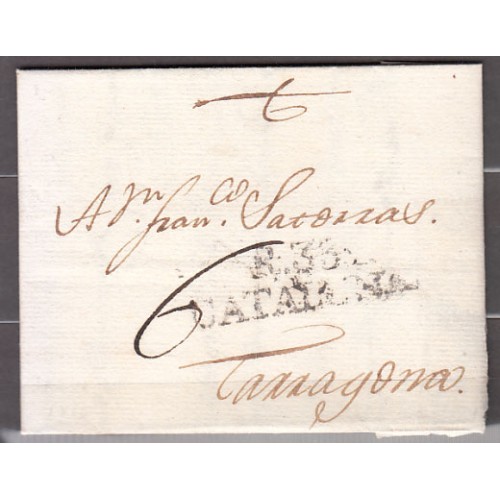 A Dn. Franco. Satorras.
6
CATALUÑA
Tarragona.